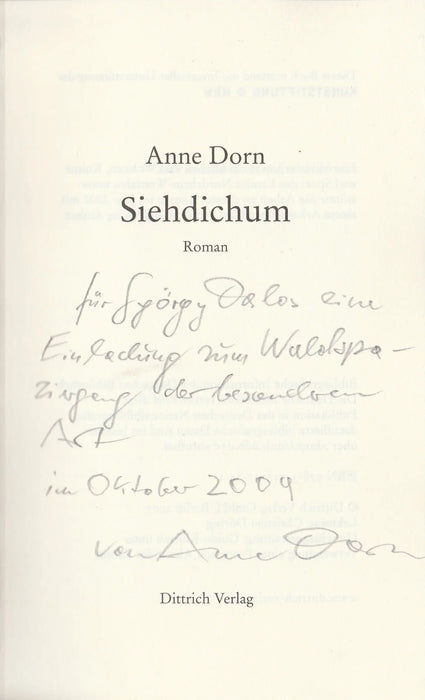 Anne Dorn
Siehdichum
Roman
für György Dalos eine
Einladung zum Waldspa-
ziergang der besonderen
Art
im Oktober 2009
von Anne Dorn
Dittrich Verlag